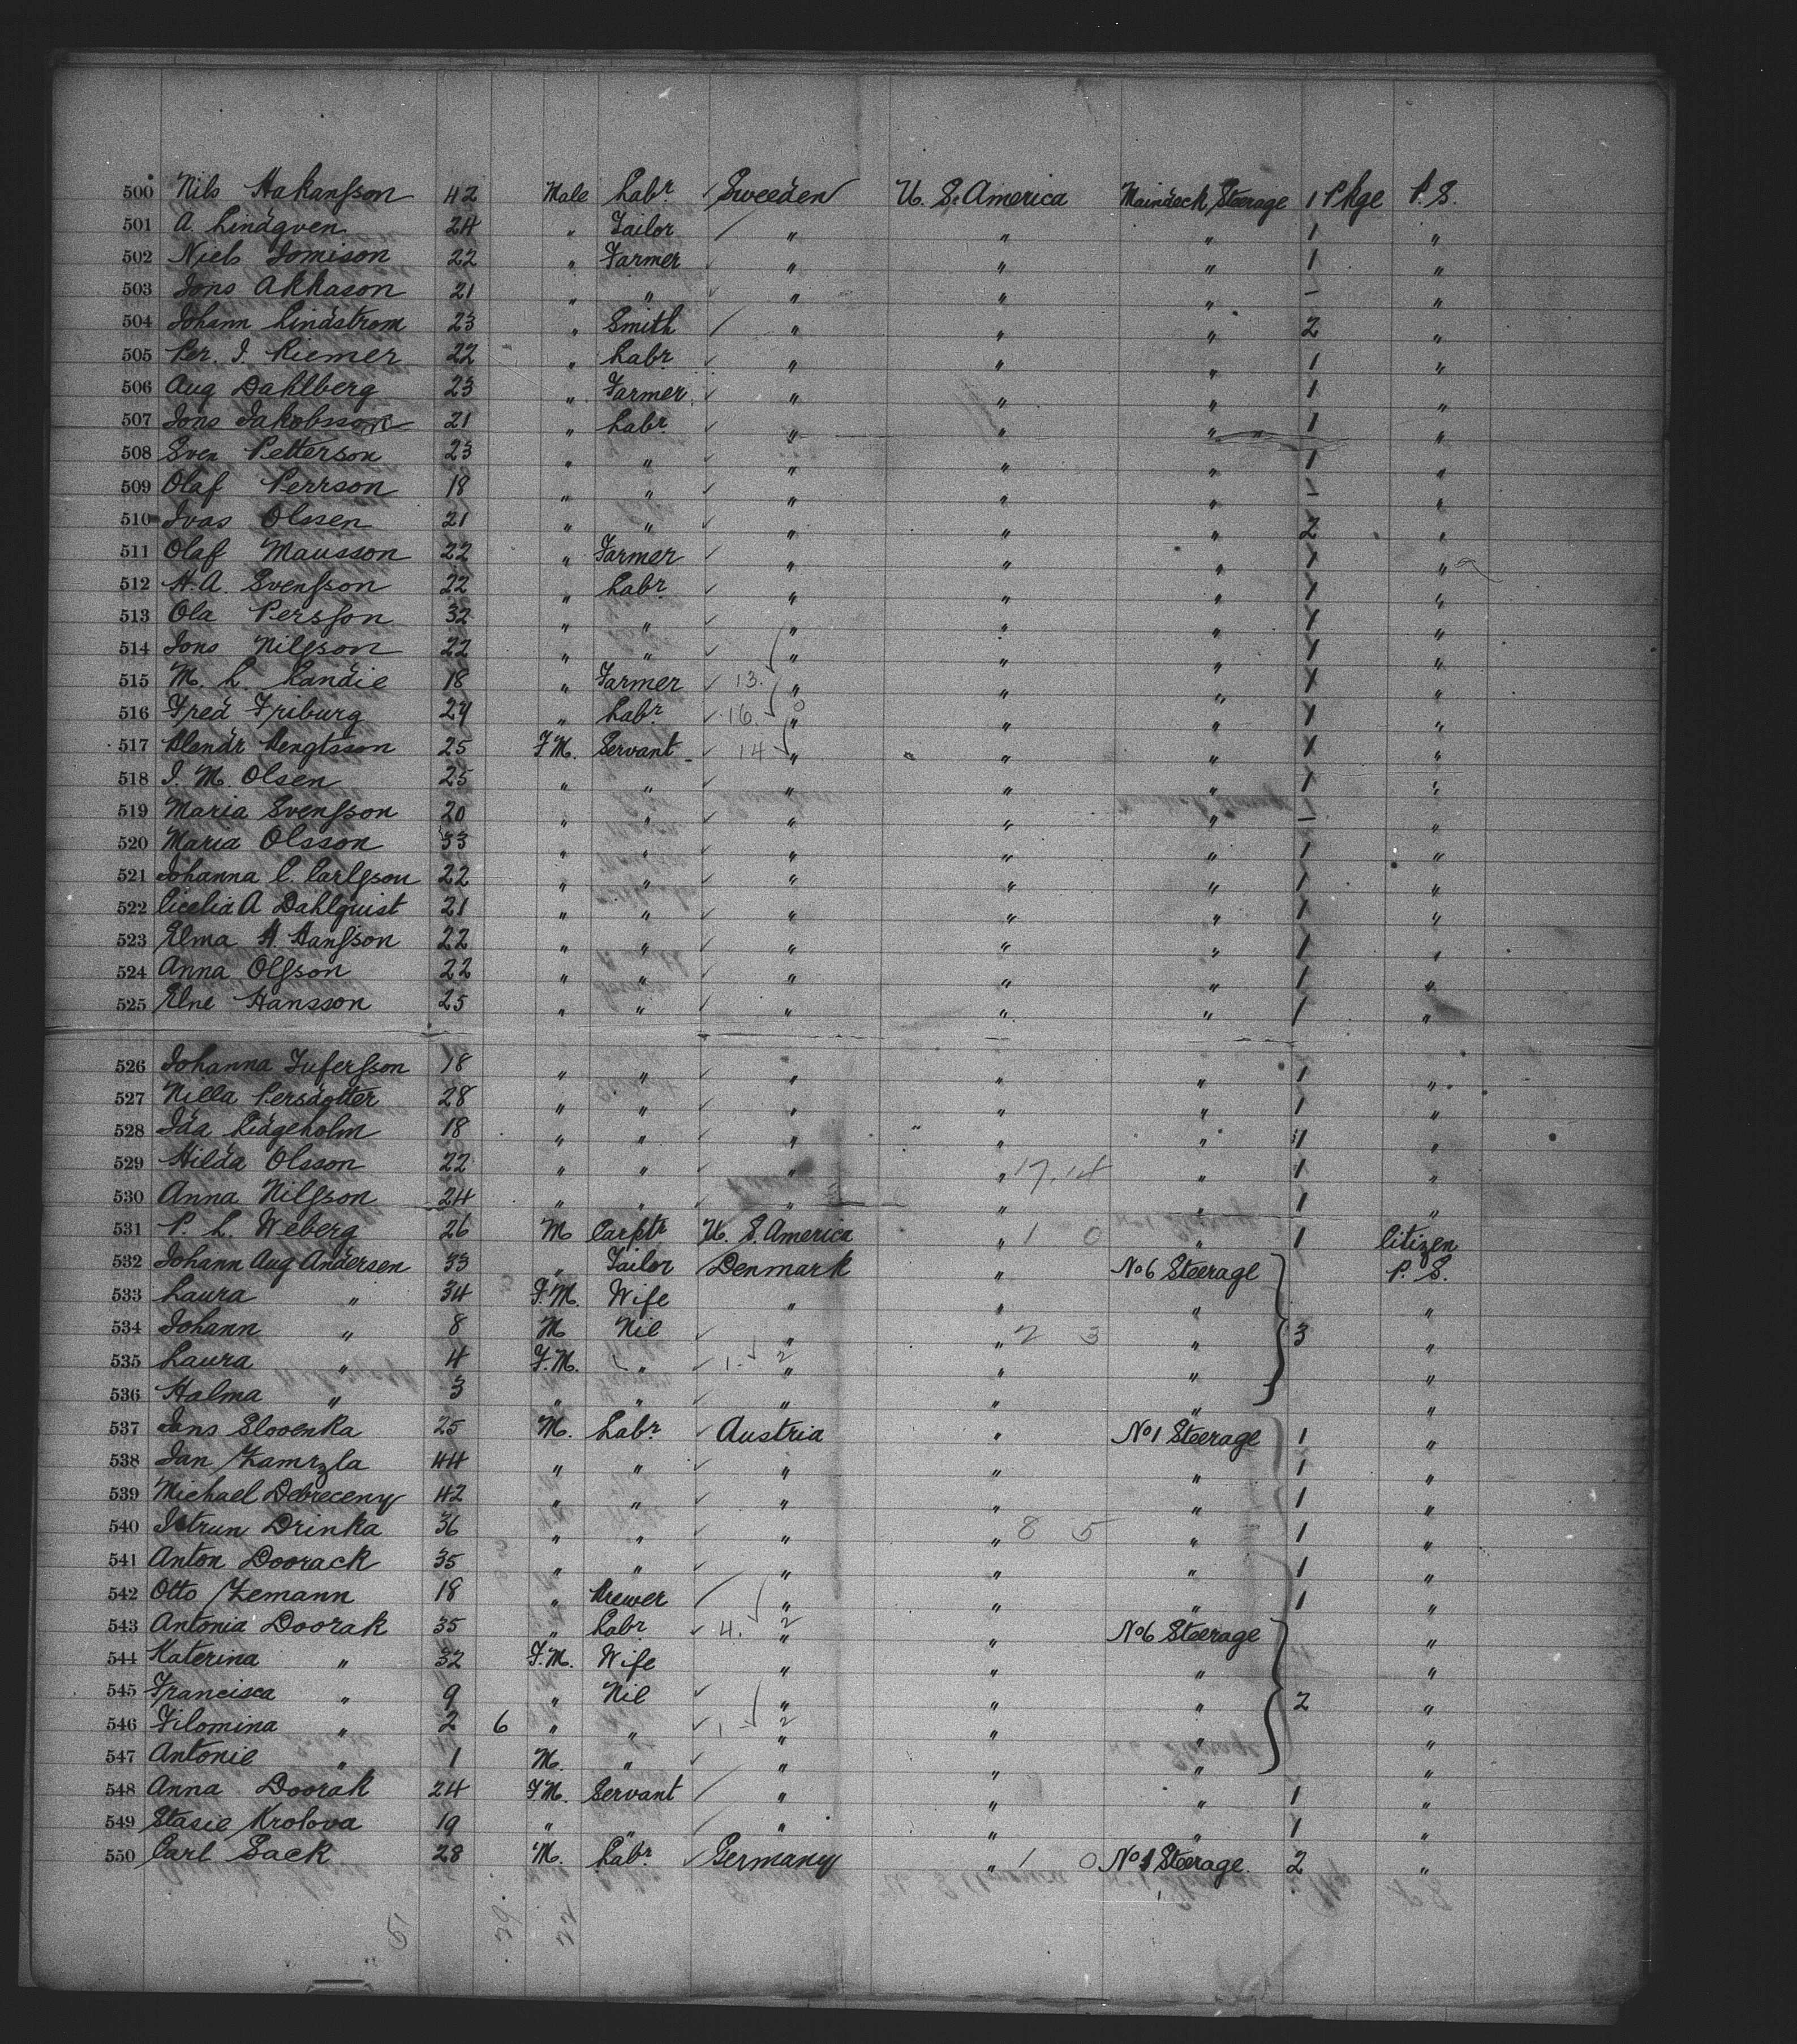 500 Nils Hakansson 42 Male Labr Sweeden U. S. America Maindeck Steerage 1 Pkge P. S.
501 A. Lindqven 24 " Tailor " " " 1 "
502 Niels Jomison 22 " Farmer " " " 1 "
503 Jons Akkason 21 " " " " " – "
504 Johann Lindstrom 23 " Smith " " " 2 "
505 Per. J. Riemer 22 " Labr " " " 1 "
506 Aug Dahlberg 23 " Farmer " " " 1 "
507 Jons Jakobsson 21 " Labr " " " 1 "
508 Sven Petterson 23 " " " " " 1 "
509 Olaf Perrson 18 " " " " " – "
510 Ivas Olssen 21 " " " " " 2 "
511 Olaf Mausson 22 " Farmer " " " 1 "
512 H. A. Svensson 22 " Labr " " " 1 "
513 Ola Persson 32 " " " " " 1 "
514 Jons Nilsson 22 " " " " " 1 "
515 M. L. Landie 18 " Farmer 13. " " " 1 "
516 Fred Friburg 24 " Labr 16. 0 " " " 1 "
517 Blendr Bengtsson 25 F.M. Servant 14 " " " 1 "
518 J. M. Olsen 25 " " " " " 1 "
519 Maria Svensson 20 " " " " " – "
520 Maria Olsson 33 " " " " " 1 "
521 Johanna C. Carlsson 22 " " " " " 1 "
522 Cicelia A Dahlquist 21 " " " " " 1 "
523 Elma H. Hansson 22 " " " " " 1 "
524 Anna Olsson 22 " " " " " 1 "
525 Elne Hansson 25 " " " " " 1 "
526 Johanna Jufersson 18 " " " " " 1 "
527 Nilla Persdotter 28 " " " " " 1 "
528 Ida Lidgeholm 18 " " " " " 1 "
529 Hilda Olsson 22 " " " " 17.14 " 1 "
530 Anna Nilsson 24 " " " " " 1 "
531 P. L. Weberg 26 M Carptr U. S. America " 1 0 " 1 Citizen
532 Johann Aug Andersen 33 " Tailor Denmark " No 6 Steerage P. S.
533 Laura " 34 F.M. Wife " " " "
534 Johann " 8 M Nil " " 2 3 " 3 "
535 Laura " 4 F.M. " 1. 2 " " " "
536 Halma " 3 " " " " " "
537 Jans Slovenka 25 M. Labr Austria " No 1 Steerage 1 "
538 Jan Zamrzla 44 " " " " " 1 "
539 Michael Debreceny 42 " " " " " 1 "
540 Istrun Drinka 36 " " " " 8 5 " 1 "
541 Anton Doorack 35 " " " " " 1 "
542 Otto Zemann 18 " Brewer " " " 1 "
543 Antonia Doorak 35 " Labr 4. 2 " " No 6 Steerage "
544 Katerina " 32 F.M. Wife " " " "
545 Francisca " 9 " Nil " " " 2 "
546 Filomina " 2 6 " " 1 2 " " " "
547 Antonie " 1 M. " " " " "
548 Anna Doorak 24 F.M. Servant " " " 1 "
549 Stasie Krolova 19 " " " " " 1 "
550 Carl Sack 28 M. Labr Germany " 1 0 No 1 Steerage. 2 "
51 29 22